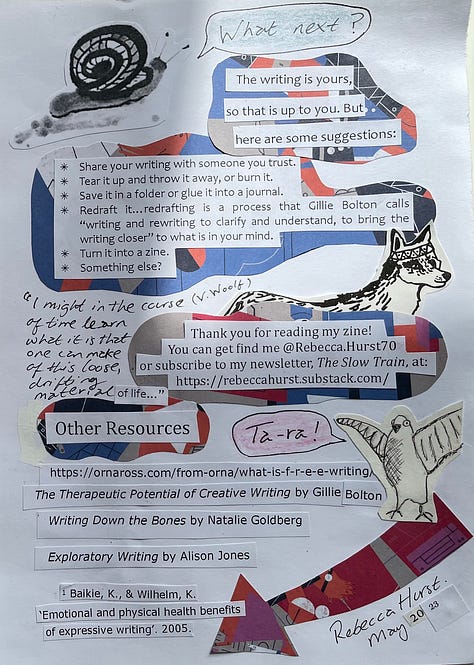 What next?
The writing is yours,
so that is up to you. But
here are some suggestions:
✳ Share your writing with someone you trust.
✳ Tear it up and throw it away, or burn it.
✳ Save it in a folder or glue it into a journal.
✳ Redraft it...redrafting is a process that Gillie Bolton calls
“writing and rewriting to clarify and understand, to bring the
writing closer” to what is in your mind.
✳ Turn it into a zine.
✳ Something else?
"I might in the course (V. Woolf)
of time learn
what it is that
one can make
of this loose,
drifting
material of life...”
Thank you for reading my zine!
You can get find me @Rebecca.Hurst70
or subscribe to my newsletter, The Slow Train, at:
https://rebeccahurst.substack.com/
Other Resources
Ta-ra!
https://ornaross.com/from-orna/what-is-f-r-e-e-writing/
The Therapeutic Potential of Creative Writing by Gillie Bolton
Writing Down the Bones by Natalie Goldberg
Exploratory Writing by Alison Jones
¹ Baikie, K., & Wilhelm, K.
‘Emotional and physical health benefits
of expressive writing’. 2005.
Rebecca Hurst.
May 2023